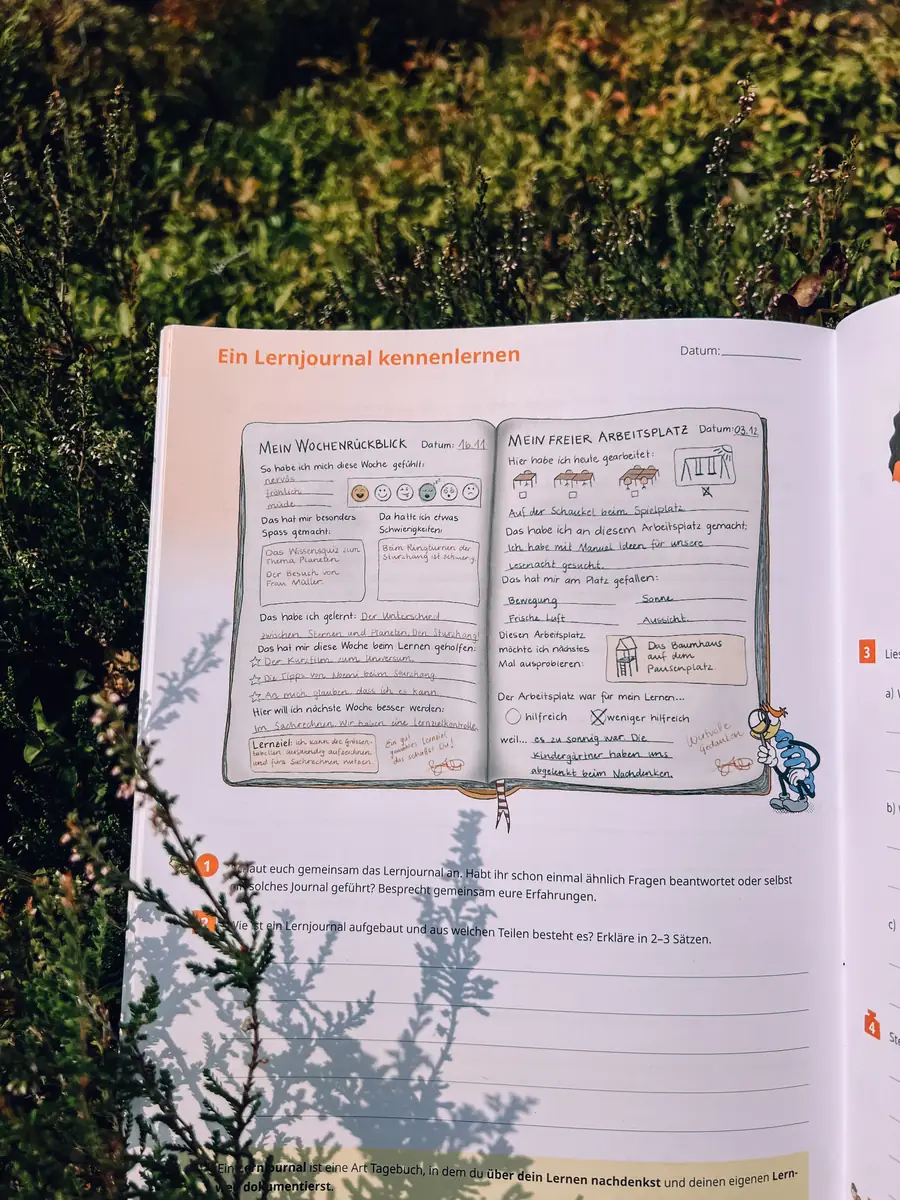 Ein Lernjournal kennenlernen
Datum:
MEIN WOCHENRÜCKBLICK Datum: 16.11
So habe ich mich diese Woche gefühlt:
nervös
fröhlich
müde
Das hat mir besonders
Spass gemacht:
Das Wissensquiz zum
Thema Planeten
Der Besuch von
Frau Müller.
Da hatte ich etwas
Schwierigkeiten:
Beim Ringturnen der
Sturzhang ist schwierig
Das habe ich gelernt: Der Unterschied
zwischen Sternen und Planeten. Den Sturzhang!
Das hat mir diese Woche beim Lernen geholfen:
Der Kurzfilm zum Universum.
Die Tipps von Noemi beim Sturzhang
An mich glauben, dass ich es kann
Hier will ich nächste Woche besser werden:
Im Sachrechnen. Wir haben eine Lernzielkontrolle.
Lernziel: Ich kann die Grössen-
tabellen auswendig aufzeichnen
und fürs Sachrechnen nutzen.
Ein gut
Lernziel,
das schaffst du!
MEIN FREIER ARBEITSPLATZ Datum: 03.12
Hier habe ich heute gearbeitet:
Auf der Schaukel beim Spielplatz
Das habe ich an diesem Arbeitsplatz gemacht:
Ich habe mit Manuel Ideen für unsere
Lesenacht gesucht.
Das hat mir am Platz gefallen:
Bewegung Sonne
Frische Luft Aussicht
Diesen Arbeitsplatz
möchte ich nächstes
Mal ausprobieren:
Das Baumhaus
auf dem
Pausenplatz.
Der Arbeitsplatz war für mein Lernen...
hilfreich weniger hilfreich
weil... es zu sonnig war. Die
Kindergärtner haben uns
abgelenkt beim Nachdenken.
Wertvolle
Gedanken
1
Schaut euch gemeinsam das Lernjournal an. Habt ihr schon einmal ähnlich Fragen beantwortet oder selbst
ein solches Journal geführt? Besprecht gemeinsam eure Erfahrungen.
2
Wie ist ein Lernjournal aufgebaut und aus welchen Teilen besteht es? Erkläre in 2–3 Sätzen.
Ein Lernjournal ist eine Art Tagebuch, in dem du über dein Lernen nachdenkst und deinen eigenen Lern-
weg dokumentierst.
3
Lies
a)
b)
c)
4